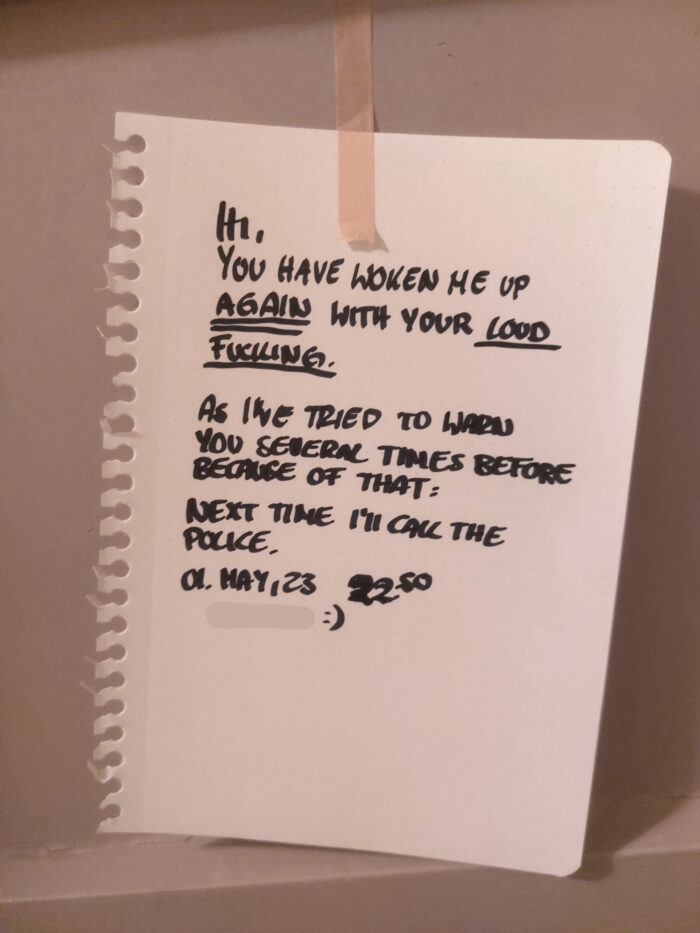 HI,
YOU HAVE WOKEN ME UP
AGAIN WITH YOUR LOUD
FUCKING.
AS I'VE TRIED TO WARN
YOU SEVERAL TIMES BEFORE
BECAUSE OF THAT:
NEXT TIME I'll CALL THE
POLICE.
01. MAY, 23 22 50
:)